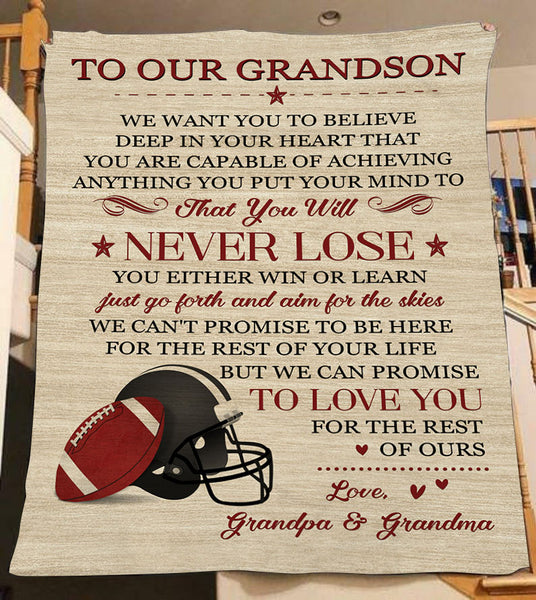 TO OUR GRANDSON
WE WANT YOU TO BELIEVE
DEEP IN YOUR HEART THAT
YOU ARE CAPABLE OF ACHIEVING
ANYTHING YOU PUT YOUR MIND TO
That You Will
NEVER LOSE
YOU EITHER WIN OR LEARN
just go forth and aim for the skies
WE CAN'T PROMISE TO BE HERE
FOR THE REST OF YOUR LIFE
BUT WE CAN PROMISE
TO LOVE YOU
FOR THE REST
OF OURS
Love,
Grandpa & Grandma